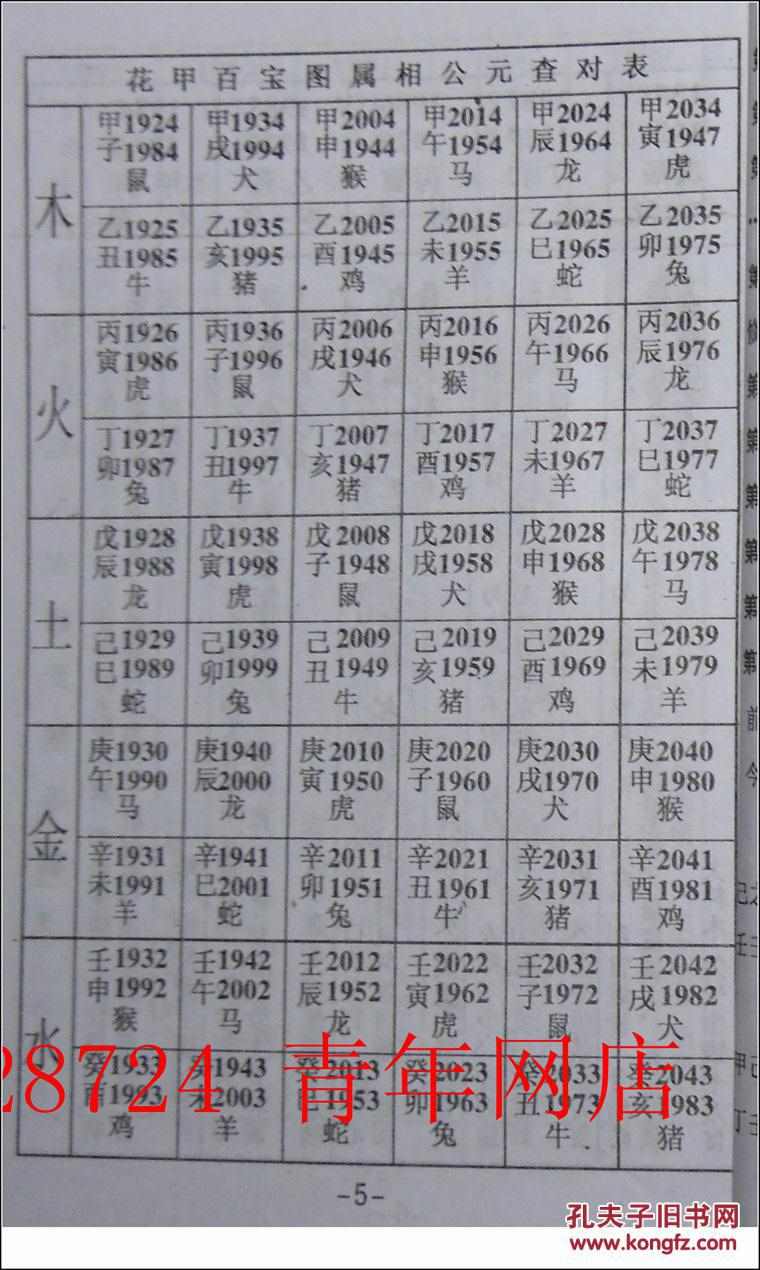 花甲百宝图属相公元查对表
木
甲1924 甲1934 甲2004 甲2014 甲2024 甲2034
子1984 戌1994 申1944 午1954 辰1964 寅1947
鼠 犬 猴 马 龙 虎
乙1925 乙1935 乙2005 乙2015 乙2025 乙2035
丑1985 亥1995 酉1945 未1955 巳1965 卯1975
牛 猪 鸡 羊 蛇 兔
火
丙1926 丙1936 丙2006 丙2016 丙2026 丙2036
寅1986 子1996 戌1946 申1956 午1966 辰1976
虎 鼠 犬 猴 马 龙
丁1927 丁1937 丁2007 丁2017 丁2027 丁2037
卯1987 丑1997 亥1947 酉1957 未1967 巳1977
兔 牛 猪 鸡 羊 蛇
土
戊1928 戊1938 戊2008 戊2018 戊2028 戊2038
辰1988 寅1998 子1948 戌1958 申1968 午1978
龙 虎 鼠 犬 猴 马
己1929 己1939 己2009 己2019 己2029 己2039
巳1989 卯1999 丑1949 亥1959 酉1969 未1979
蛇 兔 牛 猪 鸡 羊
金
庚1930 庚1940 庚2010 庚2020 庚2030 庚2040
午1990 辰2000 寅1950 子1960 戌1970 申1980
马 龙 虎 鼠 犬 猴
辛1931 辛1941 辛2011 辛2021 辛2031 辛2041
未1991 巳2001 卯1951 丑1961 亥1971 酉1981
羊 蛇 兔 牛 猪 鸡
水
壬1932 壬1942 壬2012 壬2022 壬2032 壬2042
申1992 午2002 辰1952 寅1962 子1972 戌1982
猴 马 龙 虎 鼠 犬
癸1933 癸1943 癸2013 癸2023 癸2033 癸2043
酉1993 未2003 巳1953 卯1963 丑1973 亥1983
鸡 羊 蛇 兔 牛 猪
28724 青年网店
-5-
孔夫子旧书网
www.kongfz.com